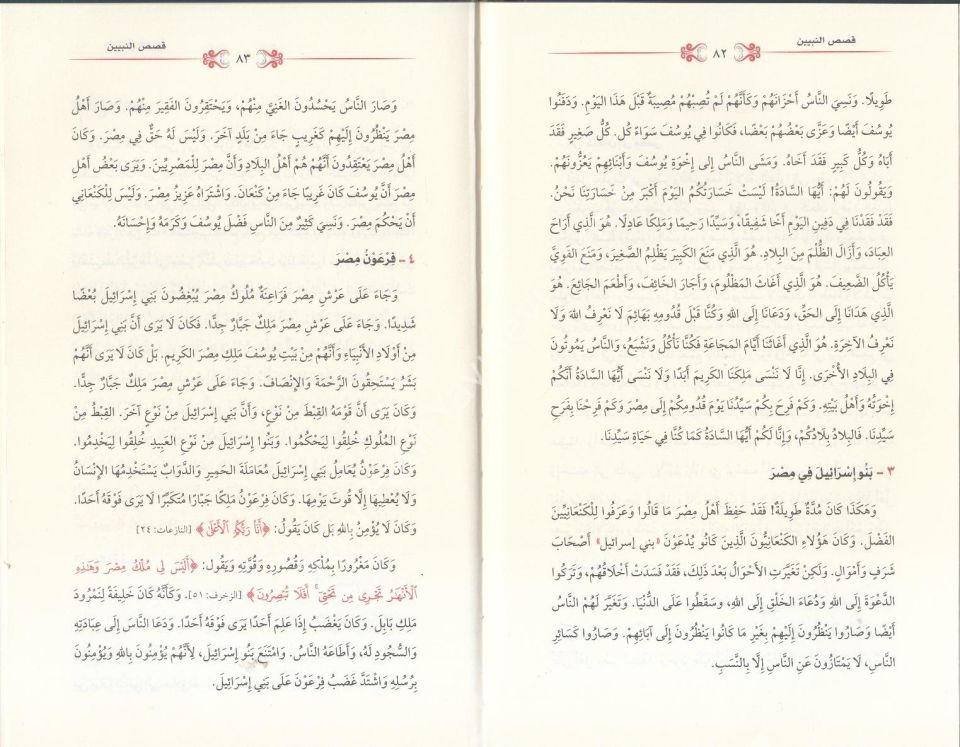 قصص النبيين
٨٢
طَوِيلًا. وَنَسِيَ النَّاسُ أَحْزَانَهُمْ وَكَأَنَّهُمْ لَمْ تُصِبْهُمْ مُصِيبَةٌ قَبْلَ هَذَا الْيَوْمِ. وَدَفَنُوا
يُوسُفَ أَيْضًا وَعَزَّى بَعْضُهُمْ بَعْضًا، فَكَانُوا فِي يُوسُفَ سَوَاءً كُل. كُلُّ صَغِيرٍ فَقَدَ
أَبَاهُ وَكُلُّ كَبِيرٍ فَقَدَ أَخَاهُ. وَمَشَى النَّاسُ إلى إخْوَةِ يُوسُفَ وَأَبْنَائِهِمْ يَعَزُّونَهُمْ.
وَيَقُولُونَ لَهُمْ: أَيُّهَا السَّادَةُ! لَيْسَتْ خَسَارَتُكُمُ الْيَوْمَ أَكْبَرَ مِنْ خَسَارَتِنَا نَحْنُ.
فَقَدْ فَقَدْنَا فِي دَفِينِ الْيَوْمِ أَخًا شَفِيقًا، وَسَيِّدًا رَحِيمًا وَمَلِكًا عَادِلًا. هُوَ الَّذِي أَرَاحَ
العِبَادَ، وَأَزَالَ الظُّلْمَ مِنَ الْبِلَادِ. هُوَ الَّذِي مَنَعَ الكَبِيرَ يَظْلِمُ الصَّغِيرَ، وَمَنَعَ القَوِيَّ
يَأْكُلُ الضَّعِيفَ. هُوَ الَّذِي أَغَاثَ المَظْلُومَ، وَأَجَارَ الخَائِفَ، وَأَطْعَمَ الجَائِعَ. هُوَ
الَّذِي هَدَانَا إِلَى الحَقِّ، وَدَعَانَا إِلَى اللهِ وَكُنَّا قَبْلَ قُدُومِهِ بَهَائِمَ لَا نَعْرِفُ اللهَ وَلَا
نَعْرِفُ الآخِرَةِ. هُوَ الَّذِي أَغَاثَنَا أَيَّامَ المَجَاعَةِ فَكُنَّا نَأْكُلُ وَنَشْبَعُ، وَالنَّاسُ يَمُوتُونَ
فِي البِلَادِ الأُخْرَى. إِنَّا لَا نَنْسَى مَلِكَنَا الكَرِيمَ أَبَدًا وَلَا نَنْسَى أَيُّهَا السَّادَةُ أَنَّكُمْ
إِخْوَتُهُ وَأَهْلُ بَيْتِهِ. وَكَمْ فَرِحَ بِكُمْ سَيِّدُنَا يَوْمَ قُدُومِكُمْ إِلَى مِصْرَ وَكَمْ فَرِحْنَا بِفَرَحِ
سَيِّدِنَا. فَالبِلَادُ بِلَادُكُمْ، وَإِنَّا لَكُمْ أَيُّهَا السَّادَةُ كَمَا كُنَّا فِي حَيَاةِ سَيِّدِنَا.
٣ - بَنُو إِسْرَائِيلَ فِي مِصْرَ
وَهَكَذَا كَانَ مُدَّةً طَوِيلَةً! فَقَدْ حَفِظَ أَهْلُ مِصْرَ مَا قَالُوا وَعَرَفُوا لِلْكَنْعَانِيِّينَ
الفَضْلَ. وَكَانَ هَؤُلَاءِ الكَنْعَانِيُّونَ الَّذِينَ كَانُو يُدْعَوْنَ «بني إسرائيل» أَصْحَابَ
شَرَفٍ وَأَمْوَالٍ. وَلَكِنْ تَغَيَّرَتِ الأَحْوَالُ بَعْدَ ذَلِكَ، فَقَدْ فَسَدَتْ أَخْلَاقُهُمْ، وَتَرَكُوا
الدَّعْوَةَ إِلَى اللهِ وَدُعَاءَ الخَلْقِ إِلَى اللهِ، وَسَقَطُوا عَلَى الدُّنْيَا. وَتَغَيَّرَ لَهُمُ النَّاسُ
أَيْضًا وَصَارُوا يَنْظُرُونَ إِلَيْهِمْ بِغَيْرِ مَا كَانُوا يَنْظُرُونَ إِلَى آبَائِهِمْ. وَصَارُوا كَسَائِرِ
النَّاسِ، لَا يَمْتَازُونَ عَنِ النَّاسِ إِلَّا بِالنَّسَبِ.
قصص النبيين
٨٣
وَصَارَ النَّاسُ يَحْسُدُونَ الغَنِيَّ مِنْهُمْ، وَيَحْتَقِرُونَ الفَقِيرَ مِنْهُمْ. وَصَارَ أَهْلُ
مِصْرَ يَنْظُرُونَ إِلَيْهِمْ كَغَرِيبٍ جَاءَ مِنْ بَلَدٍ آخَرَ. وَلَيْسَ لَهُ حَقٌّ فِي مِصْرَ. وَكَانَ
أَهْلُ مِصْرَ يَعْتَقِدُونَ أَنَّهُمْ هُمْ أَهْلُ البِلَادِ وَأَنَّ مِصْرَ لِلْمَصْرِيِّينَ. وَيَرَى بَعْضُ أَهْلِ
مِصْرَ أَنَّ يُوسُفَ كَانَ غَرِيبًا جَاءَ مِنْ كَنْعَانَ. وَاشْتَرَاهُ عَزِيزُ مِصْرَ. وَلَيْسَ لِلْكَنْعَانِي
أَنْ يَحْكُمَ مِصْرَ. وَنَسِيَ كَثِيْرٌ مِنَ النَّاسِ فَضْلَ يُوسُفَ وَكَرَمَهُ وَإِحْسَانَهُ.
٤ - فِرْعَوْنُ مِصْرَ
وَجَاءَ عَلَى عَرْشِ مِصْرَ فَرَاعِنَةٌ مُلُوكُ مِصْرَ يُبْغِضُونَ بَنِي إِسْرَائِيلَ بُغْضًا
شَدِيدًا. وَجَاءَ عَلَى عَرْشِ مِصْرَ مَلِكٌ جَبَّارٌ جِدًّا. فَكَانَ لَا يَرَى أَنَّ بَنِي إِسْرَائِيلَ
مِنْ أَوْلَادِ الأَنْبِيَاءِ وَأَنَّهُمْ مِنْ بَيْتِ يُوسُفَ مَلِكِ مِصْرَ الكَرِيمِ. بَلْ كَانَ لَا يَرَى أَنَّهُمْ
بَشَرٌ يَسْتَحِقُّونَ الرَّحْمَةَ وَالإِنْصَافَ. وَجَاءَ عَلَى عَرْشِ مِصْرَ مَلِكٌ جَبَّارٌ جِدًّا.
وَكَانَ يَرَى أَنَّ قَوْمَهُ القِبْطَ مِنْ نَوْعٍ، وَأَنَّ بَنِي إِسْرَائِيلَ مِنْ نَوْعٍ آخَرَ. القِبْطُ مِنْ
نَوْعِ المُلُوكِ خُلِقُوا لِيَحْكُمُوا. وَبَنُوا إِسْرَائِيلَ مِنْ نَوْعِ العَبِيدِ خُلِقُوا لِيَخْدِمُوا.
وَكَانَ فِرْعَوْنُ يُعَامِلُ بَنِي إِسْرَائِيلَ مُعَامَلَةَ الحَمِيرِ وَالدَّوَابِّ يَسْتَخْدِمُهَا الإِنْسَانُ
وَلَا يُعْطِيهَا إِلَّا قُوتَ يَوْمِهَا. وَكَانَ فِرْعَوْنُ مَلِكًا جَبَّارًا مُتَكَبِّرًا لَا يَرَى فَوْقَهُ أَحَدًا.
وَكَانَ لَا يُؤْمِنُ بِاللهِ بَل كَانَ يَقُولُ: ﴿أَنَا۠ رَبُّكُمُ ٱلْأَعْلَىٰ﴾ [النازعات: ٢٤]
وَكَانَ مَغْرُورًا بِمُلْكِهِ وَقُصُورِهِ وَقُوَّتِهِ وَيَقُولُ: ﴿أَلَيْسَ لِى مُلْكُ مِصْرَ وَهَٰذِهِ
ٱلْأَنْهَٰرُ تَجْرِى مِن تَحْتِىٓ ۖ أَفَلَا تُبْصِرُونَ﴾ [الزخرف: ٥١]. وَكَأَنَّهُ كَانَ خَلِيفَةً لِنَمْرُودَ
مَلِكِ بَابِلَ. وَكَانَ يَغْضَبُ إِذَا عَلِمَ أَحَدًا يَرَى فَوْقَهُ أَحَدًا. وَدَعَا النَّاسَ إِلَى عِبَادَتِهِ
وَالسُّجُودِ لَهُ، وَأَطَاعَهُ النَّاسُ. وَامْتَنَعَ بَنُو إِسْرَائِيلَ، لِأَنَّهُمْ يُؤْمِنُونَ بِاللهِ وَيُؤْمِنُونَ
بِرُسُلِهِ وَاشْتَدَّ غَضَبُ فِرْعَوْنَ عَلَى بَنِي إِسْرَائِيلَ.